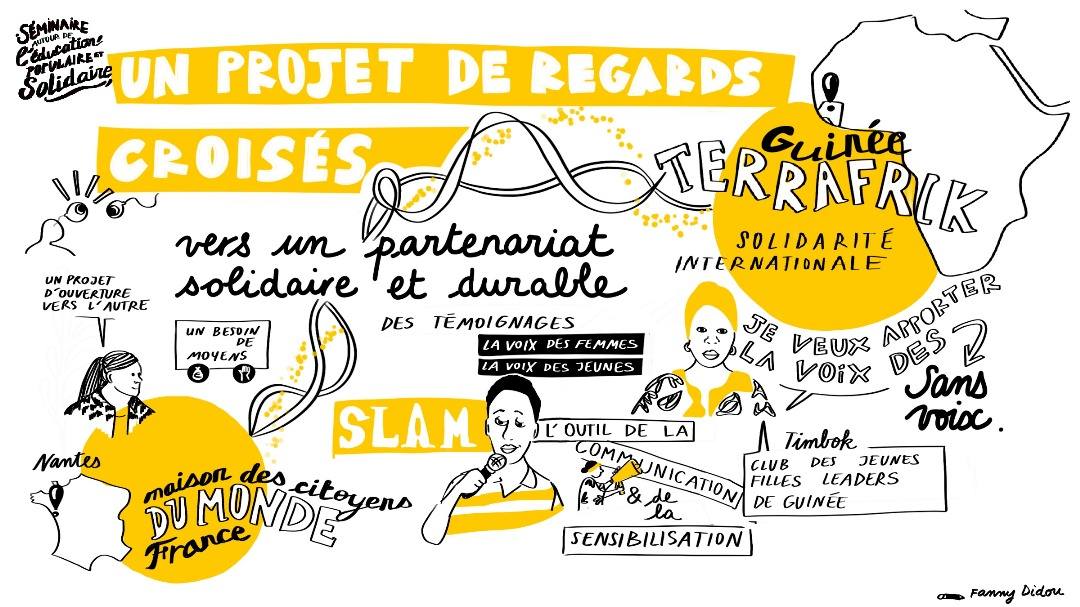 SÉMINAIRE
AUTOUR DE
L'éducation
POPULAIRE ET
Solidaire
UN PROJET DE REGARDS
CROISÉS
vers un partenariat
solidaire et durable
Guinée
TERRAFRIK
SOLIDARITÉ
INTERNATIONALE
UN PROJET
D'OUVERTURE
VERS L'AUTRE
UN BESOIN
DE
MOYENS
DES TÉMOIGNAGES
LA VOIX DES FEMMES
LA VOIX DES JEUNES
JE VEUX APPORTER
LA VOIX DES
Sans
voix.
SLAM
L'OUTIL DE LA
COMMUNICATION
& de
la
SENSIBILISATION
Timbok
CLUB DES JEUNES
FILLES LEADERS
DE GUINÉE
Nantes
maison des citoyens
DU MONDE
France
Fanny Didou